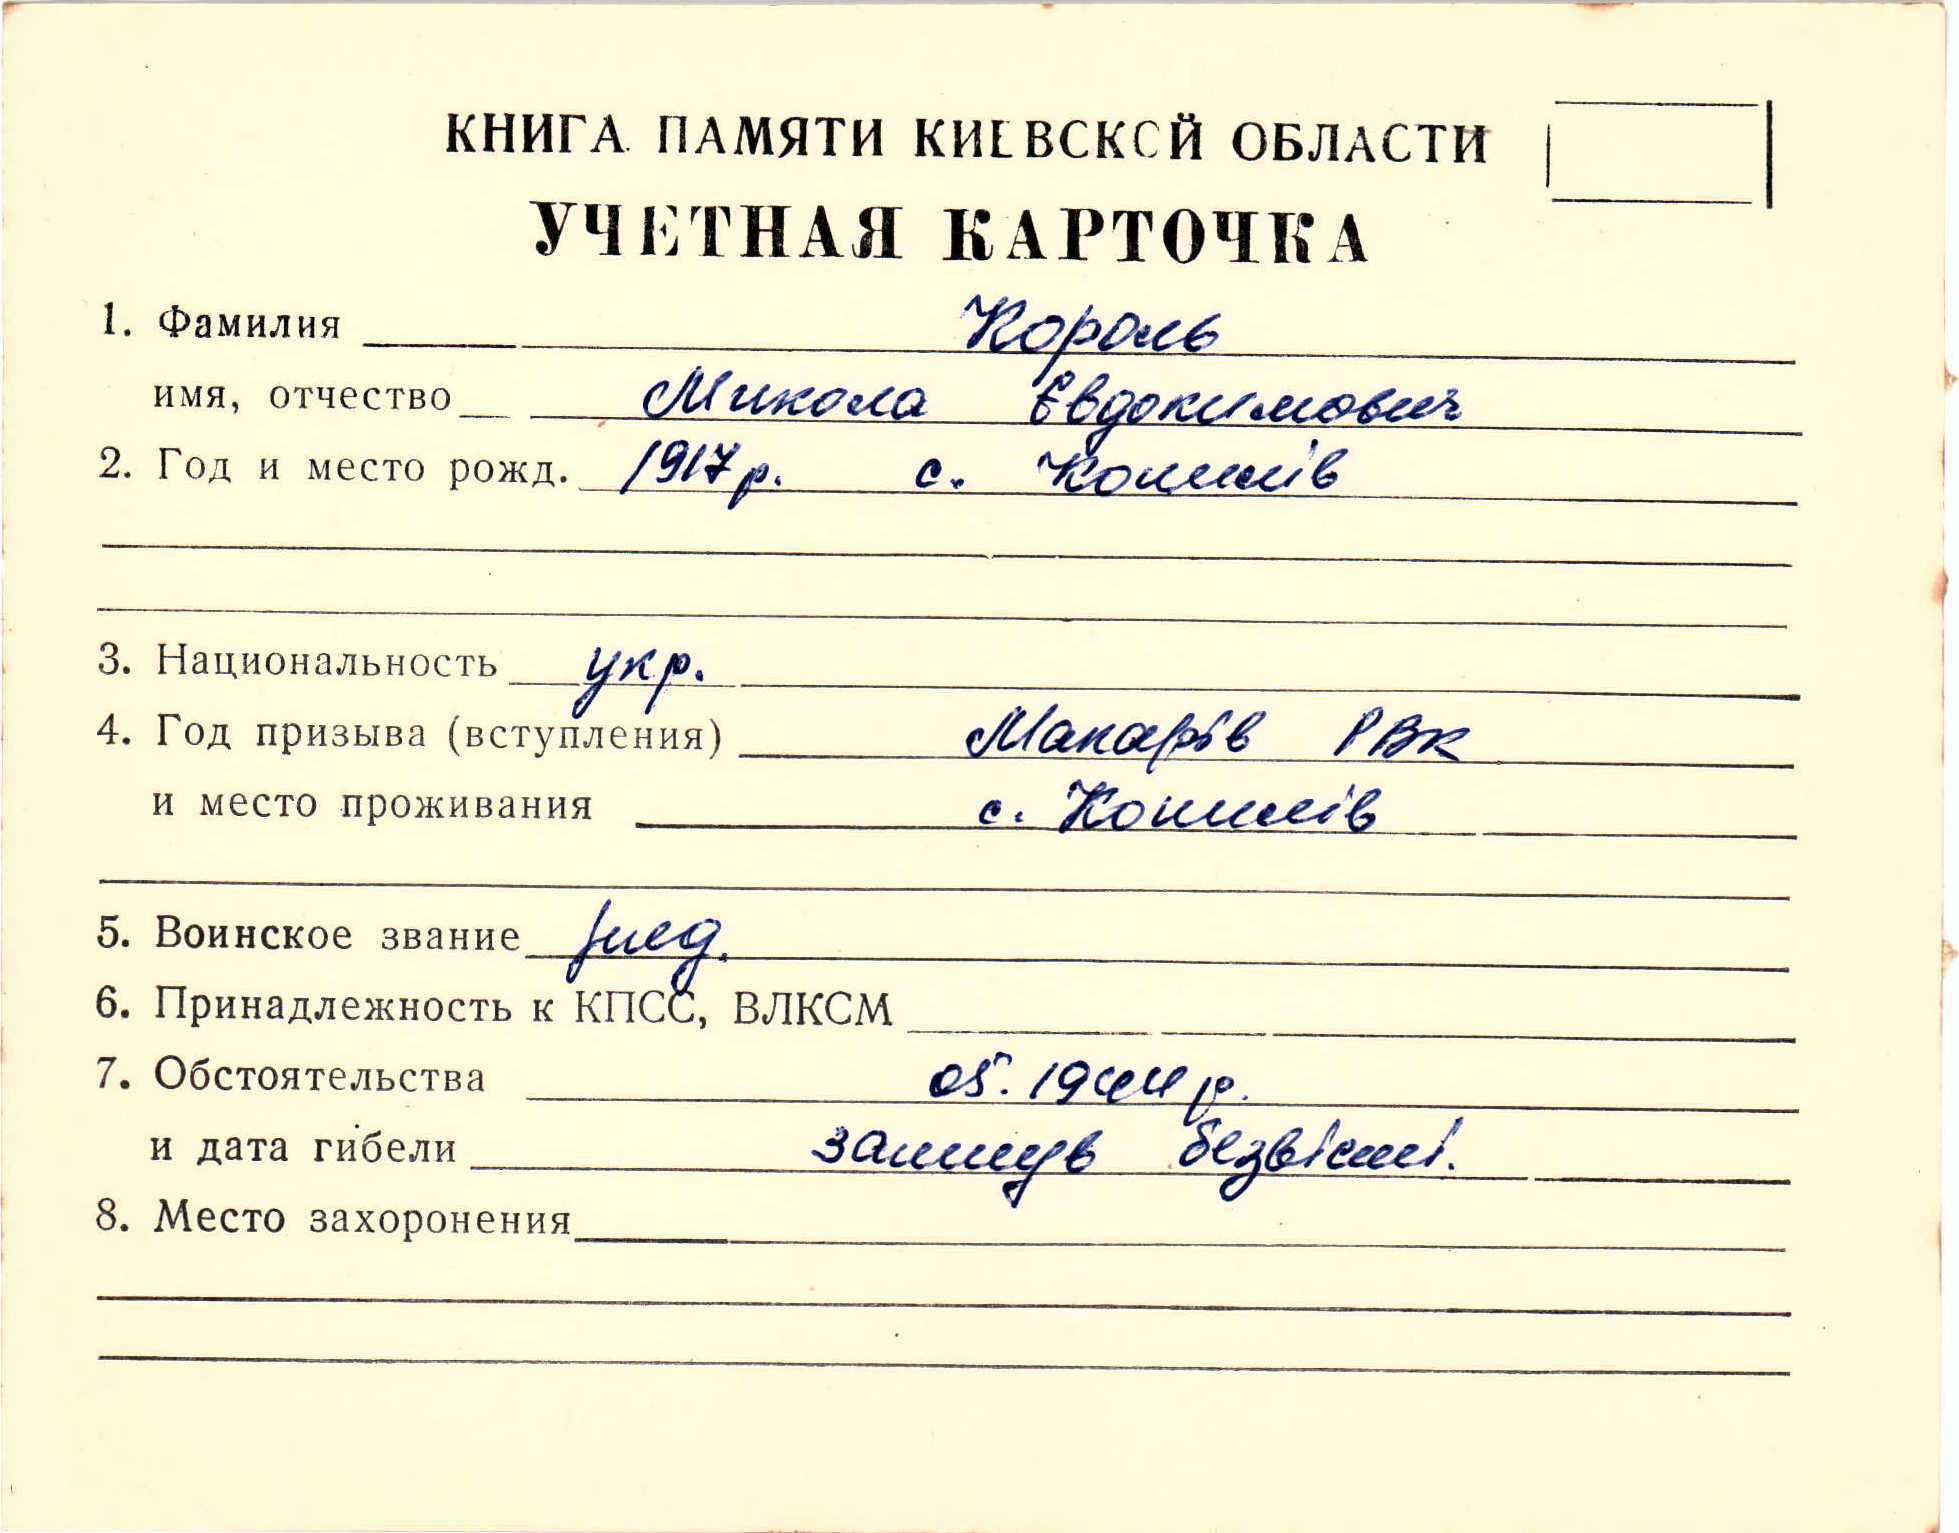 КНИГА ПАМЯТИ КИЕВСКОЙ ОБЛАСТИ
УЧЕТНАЯ КАРТОЧКА
1. Фамилия Король
имя, отчество Микола Євдокимович
2. Год и место рожд. 1917 р. с. Копилів
3. Национальность укр.
4. Год призыва (вступления) Макарів РВК
и место проживания с. Копилів
5. Воинское звание
6. Принадлежность к КПСС, ВЛКСМ
7. Обстоятельства 05. 1944 р.
и дата гибели загинув безвісті.
8. Место захоронения